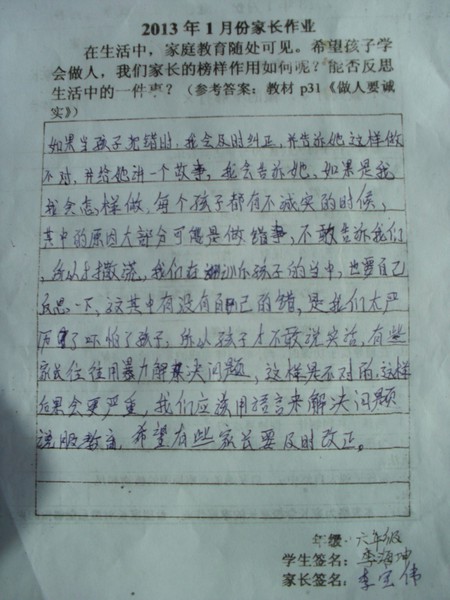 2013年1月份家长作业
在生活中，家庭教育随处可见。希望孩子学
会做人，我们家长的榜样作用如何呢？能否反思
生活中的一件事？（参考答案：教材p31《做人要诚
实》）
如果当孩子犯错时，我会及时纠正，并告诉她这样做
不对，并给她讲一个故事，我会告诉她，如果是我
我会怎样做，每个孩子都有不诚实的时候，
其中的原因大部分可能是做错事，不敢告诉我们
，所以才撒谎，我们在训斥孩子的当中，也要自己
反思一下，这其中有没有自己的错，是我们太严
厉了吓怕了孩子，所以孩子才不敢说实话，有些
家长往往用暴力解决问题，这样是不对的，这样
后果会更严重，我们应该用语言来解决问题
说服教育，希望有些家长要及时改正。
年级：六年级
学生签名：李海坤
家长签名：李宝伟